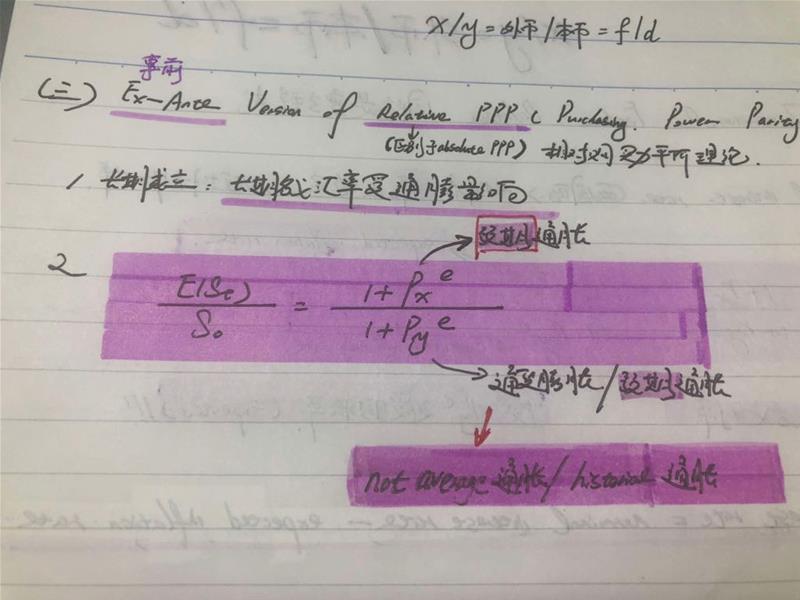 x/y = 外币/本币 = f/d
事前
(三) Ex-Ante Version of Relative PPP ( Purchasing. Power Parity
(区别于absolute PPP) 相对购买力平价理论.
1 长期成立: 长期看汇率受通膨影响
预期通胀
2 E(St) / S0 = 1 + Px^e / 1 + Py^e
通膨胀/预期通胀
not average 通胀/ historical 通胀